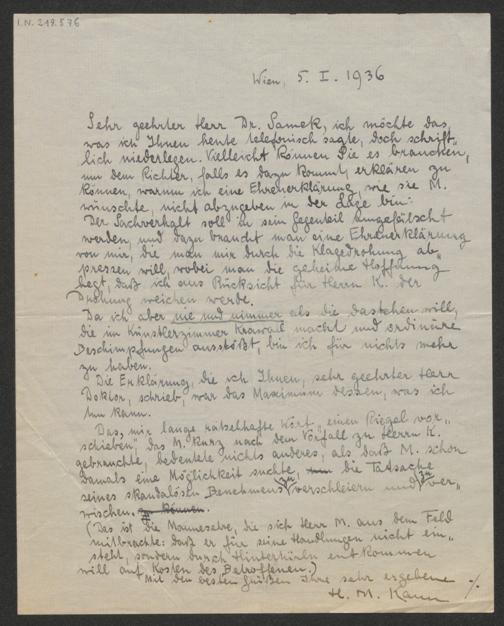 I.N. 219.576
Wien, 5. I. 1936
Sehr geehrter Herr Dr. Samek, ich möchte das,
was ich Ihnen heute telefonisch sagte, doch schrift-
lich niederlegen. Vielleicht können Sie es brauchen,
um dem Richter, falls es dazu kommt, erklären zu
können, warum ich eine Ehrenerklärung, wie sie M.
wünschte, nicht abzugeben in der Lage bin:
Der Sachverhalt soll in sein Gegenteil umgefälscht
werden, und dazu braucht man eine Ehrenerklärung
von mir, die man mir durch die Klagedrohung ab-
pressen will, wobei man die geheime Hoffnung
hegt, daß ich aus Rücksicht für Herrn K. der
Drohung weichen werde.
Da ich aber nie und nimmer als die dastehen will,
die im Künstlerzimmer Krawall macht und ordinäre
Beschimpfungen ausstößt, bin ich für nichts mehr
zu haben.
Die Erklärung, die ich Ihnen, sehr geehrter Herr
Doktor, schrieb, war das Maximum dessen, was ich
tun kann.
Das, mir lange rätselhafte Wort „einen Riegel vor-
schieben" das M. kurz nach dem Vorfall zu Herrn K.
gebrauchte, bedeutete nichts anderes, als daß M. schon
damals eine Möglichkeit suchte, die Tatsache
seines skandalösen Benehmens zu verschleiern und zu ver-
wischen.
(Das ist die Noblesse, die sich Herr M. aus dem Feld
mitbrachte: daß er für seine Handlungen nicht ein-
steht, sondern durch Hintertürln entkommen
will auf Kosten des Betroffenen.)
Mit den besten Grüßen Ihre sehr ergebene
H. M. Kann